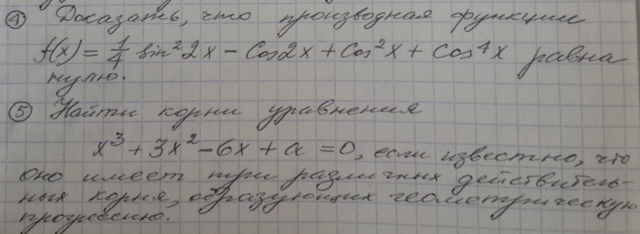 ① Доказать, что производная функции
f(x) = 1/4 sin² 2x - Cos2x + Cos²x + Cos⁴x равна
нулю.
⑤ Найти корни уравнения
x³ + 3x² - 6x + a = 0, если известно, что
оно имеет три различных действитель-
ных корня, образующих геометрическую
прогрессию.